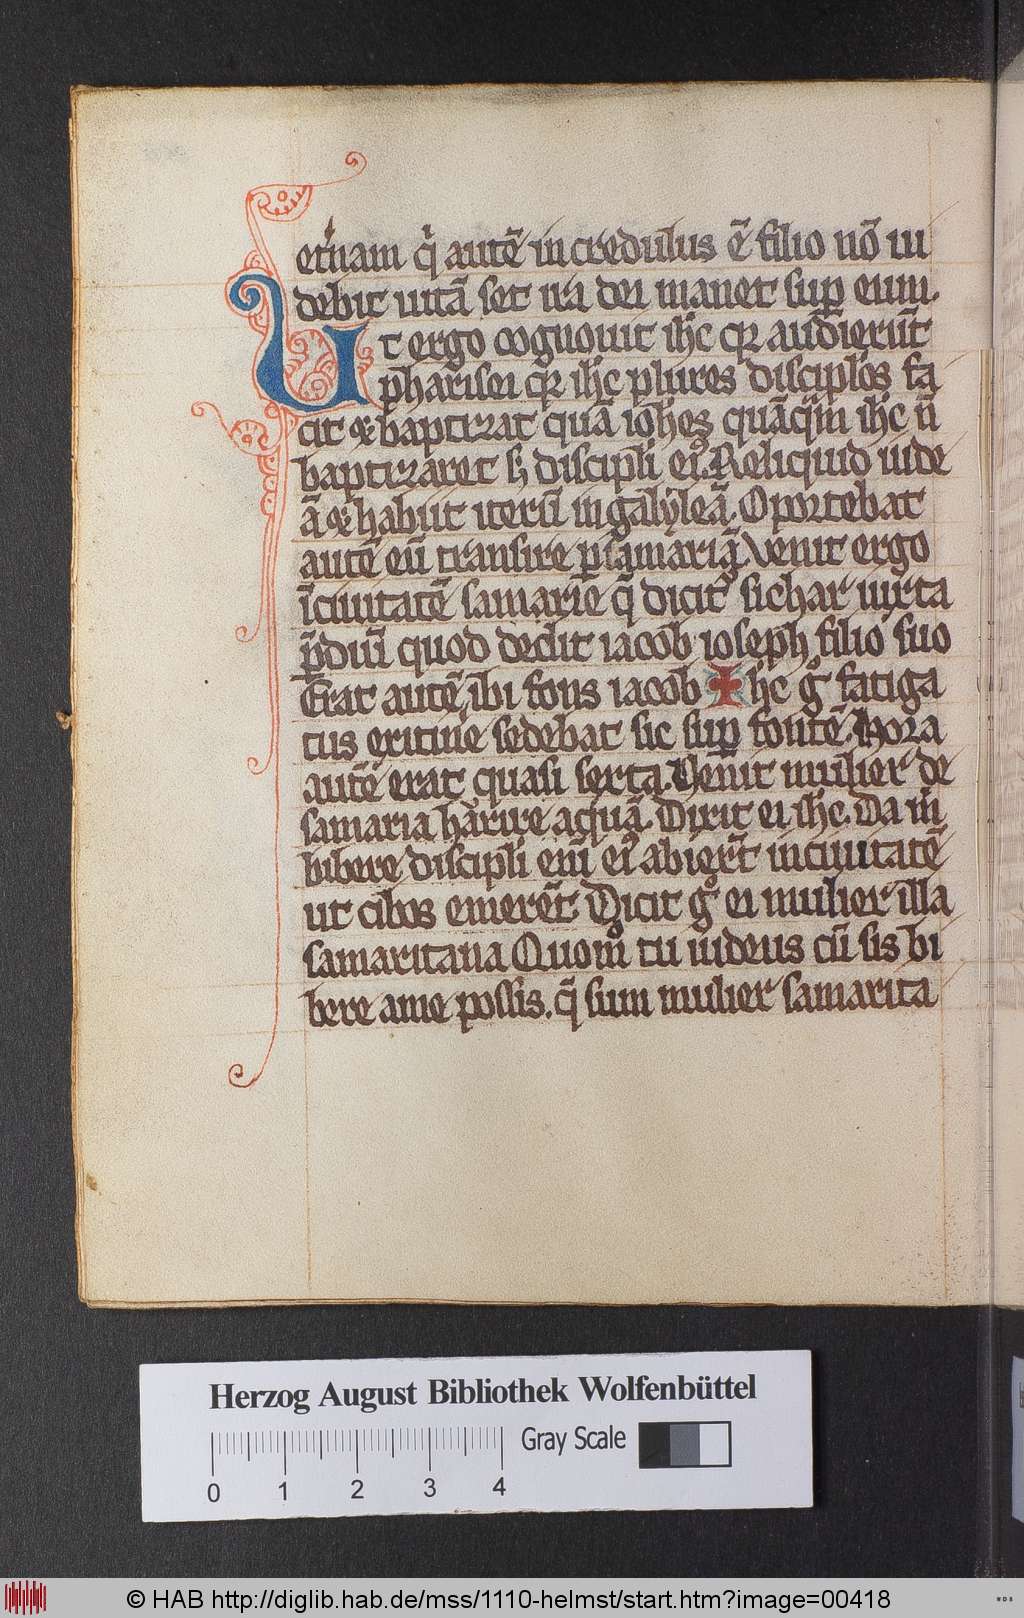 et̓nam q̓ autē incredulus ē filio nō ui
debit uitā set ira dei manet suꝑ eum.
Ut ergo cognouit ih̄c qꝛ audierūt
pharisei qꝛ ih̄c plures disciplos fa
cit ⁊ baptizat quā ioh̄es quāq̄m ih̄c n̄
baptizaret sꝫ discipli ei᷒. Reliquid iude
ā ⁊ habiit iterū in galyleā. Oportebat
autē eū transire ꝑ samariā. Venit ergo
ī ciuitatē samarie q̄ dicit᷑ sichar iuxta
p̄diū quod dedit iacob ioseph filio suo
Erat autē ibi fons iacob Ih̄c gͦ fatiga
tus ex itiñe sedebat sic suꝑ fontē. Hora
autē erat quasi sexta. Venit mulier de
samaria haurire aquā. Dixit ei ih̄c. Da m̄
bibere discipli enī ei᷒ abier̄t in ciuitatē
ut cibos emerēt. Dicit gͦ ei mulier illa
samaritana Quomͦ tu iudeus cū sis bi
bere a me possis. q̄ sum mulier samarita
Herzog August Bibliothek Wolfenbüttel
Gray Scale
0 1 2 3 4
© HAB http://diglib.hab.de/mss/1110-helmst/start.htm?image=00418